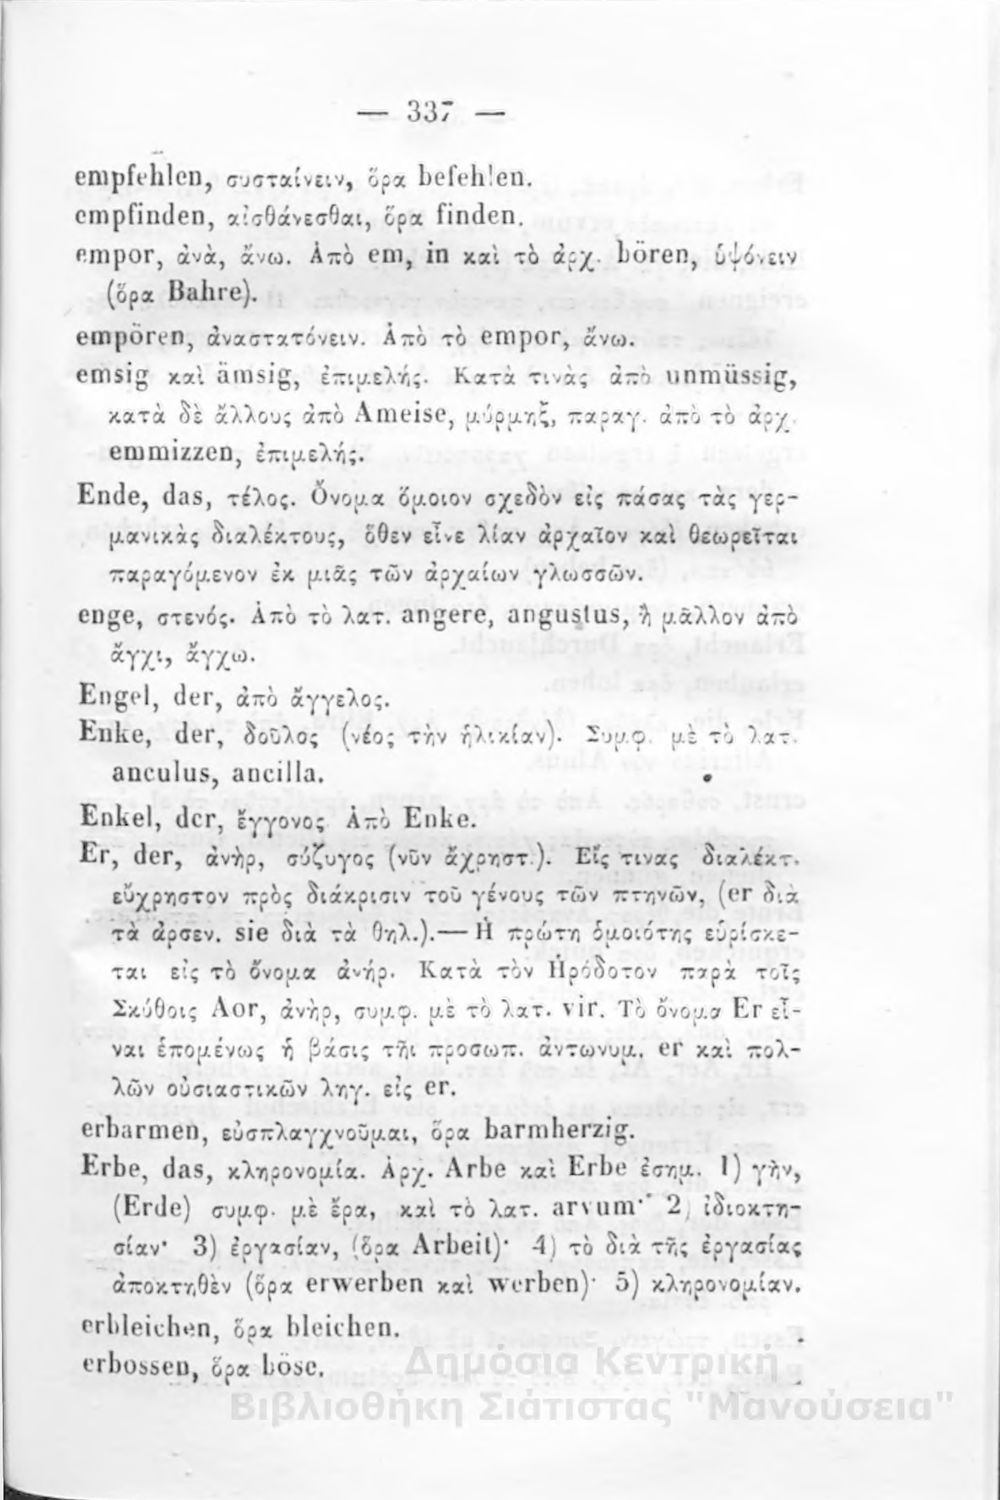 — 337 —
empfehlen, συσταίνειν, ὅρα befehlen.
empfinden, αἰσθάνεσθαι, ὅρα finden.
empor, ἀνὰ, ἄνω. Ἀπὸ em, in καὶ τὸ ἀρχ. bören, ὑψόνειν
(ὅρα Bahre).
empören, ἀναστατόνειν. Ἀπὸ τὸ empor, ἄνω.
emsig καὶ ämsig, ἐπιμελής. Κατὰ τινὰς ἀπὸ unmüssig,
κατὰ δὲ ἄλλους ἀπὸ Ameise, μύρμηξ, παραγ. ἀπὸ τὸ ἀρχ.
emmizzen, ἐπιμελής.
Ende, das, τέλος. Ὄνομα ὅμοιον σχεδὸν εἰς πάσας τὰς γερ-
μανικὰς διαλέκτους, ὅθεν εἶνε λίαν ἀρχαῖον καὶ θεωρεῖται
παραγόμενον ἐκ μιᾶς τῶν ἀρχαίων γλωσσῶν.
enge, στενός. Ἀπὸ τὸ λατ. angere, angustus, ἢ μᾶλλον ἀπὸ
ἄγχι, ἄγχω.
Engel, der, ἀπὸ ἄγγελος.
Enke, der, δοῦλος (νέος τὴν ἡλικίαν). Συμφ. μὲ τὸ λατ.
anculus, ancilla.
Enkel, der, ἔγγονος Ἀπὸ Enke.
Er, der, ἀνὴρ, σύζυγος (νῦν ἄχρηστ.). Εἴς τινας διαλέκτ.
εὔχρηστον πρὸς διάκρισιν τοῦ γένους τῶν πτηνῶν, (er διὰ
τὰ ἀρσεν. sie διὰ τὰ θηλ.).— Ἡ πρώτη ὁμοιότης εὑρίσκε-
ται εἰς τὸ ὄνομα ἀνήρ. Κατὰ τὸν Ἡρόδοτον παρὰ τοῖς
Σκύθοις Aor, ἀνὴρ, συμφ. μὲ τὸ λατ. vir. Τὸ ὄνομα Er εἶ-
ναι ἑπομένως ἡ βάσις τῆι προσωπ. ἀντωνυμ. er καὶ πολ-
λῶν οὐσιαστικῶν ληγ. εἰς er.
erbarmen, εὐσπλαγχνοῦμαι, ὅρα barmherzig.
Erbe, das, κληρονομία. Ἀρχ. Arbe καὶ Erbe ἐσημ. 1) γῆν,
(Erde) συμφ. μὲ ἔρα, καὶ τὸ λατ. arvum· 2) ἰδιοκτη-
σίαν· 3) ἐργασίαν, (ὅρα Arbeit)· 4) τὸ διὰ τῆς ἐργασίας
ἀποκτηθὲν (ὅρα erwerben καὶ werben)· 5) κληρονομίαν.
erbleichen, ὅρα bleichen.
erbossen, ὅρα böse.
Δημόσια Κεντρική
Βιβλιοθήκη Σιάτιστας "Μανούσεια"